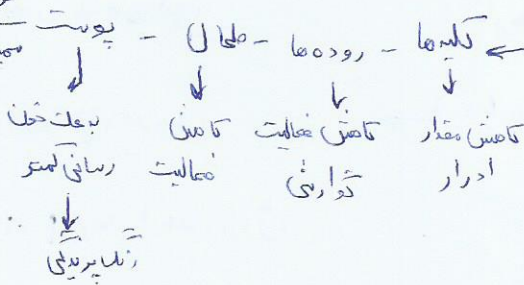 ← کلیه‌ها - روده‌ها - طحال - پوست -
کاهش مقدار ادرار
کاهش فعالیت گوارشی
کاهش فعالیت
به علت خون رسانی کمتر
رنگ پریدگی